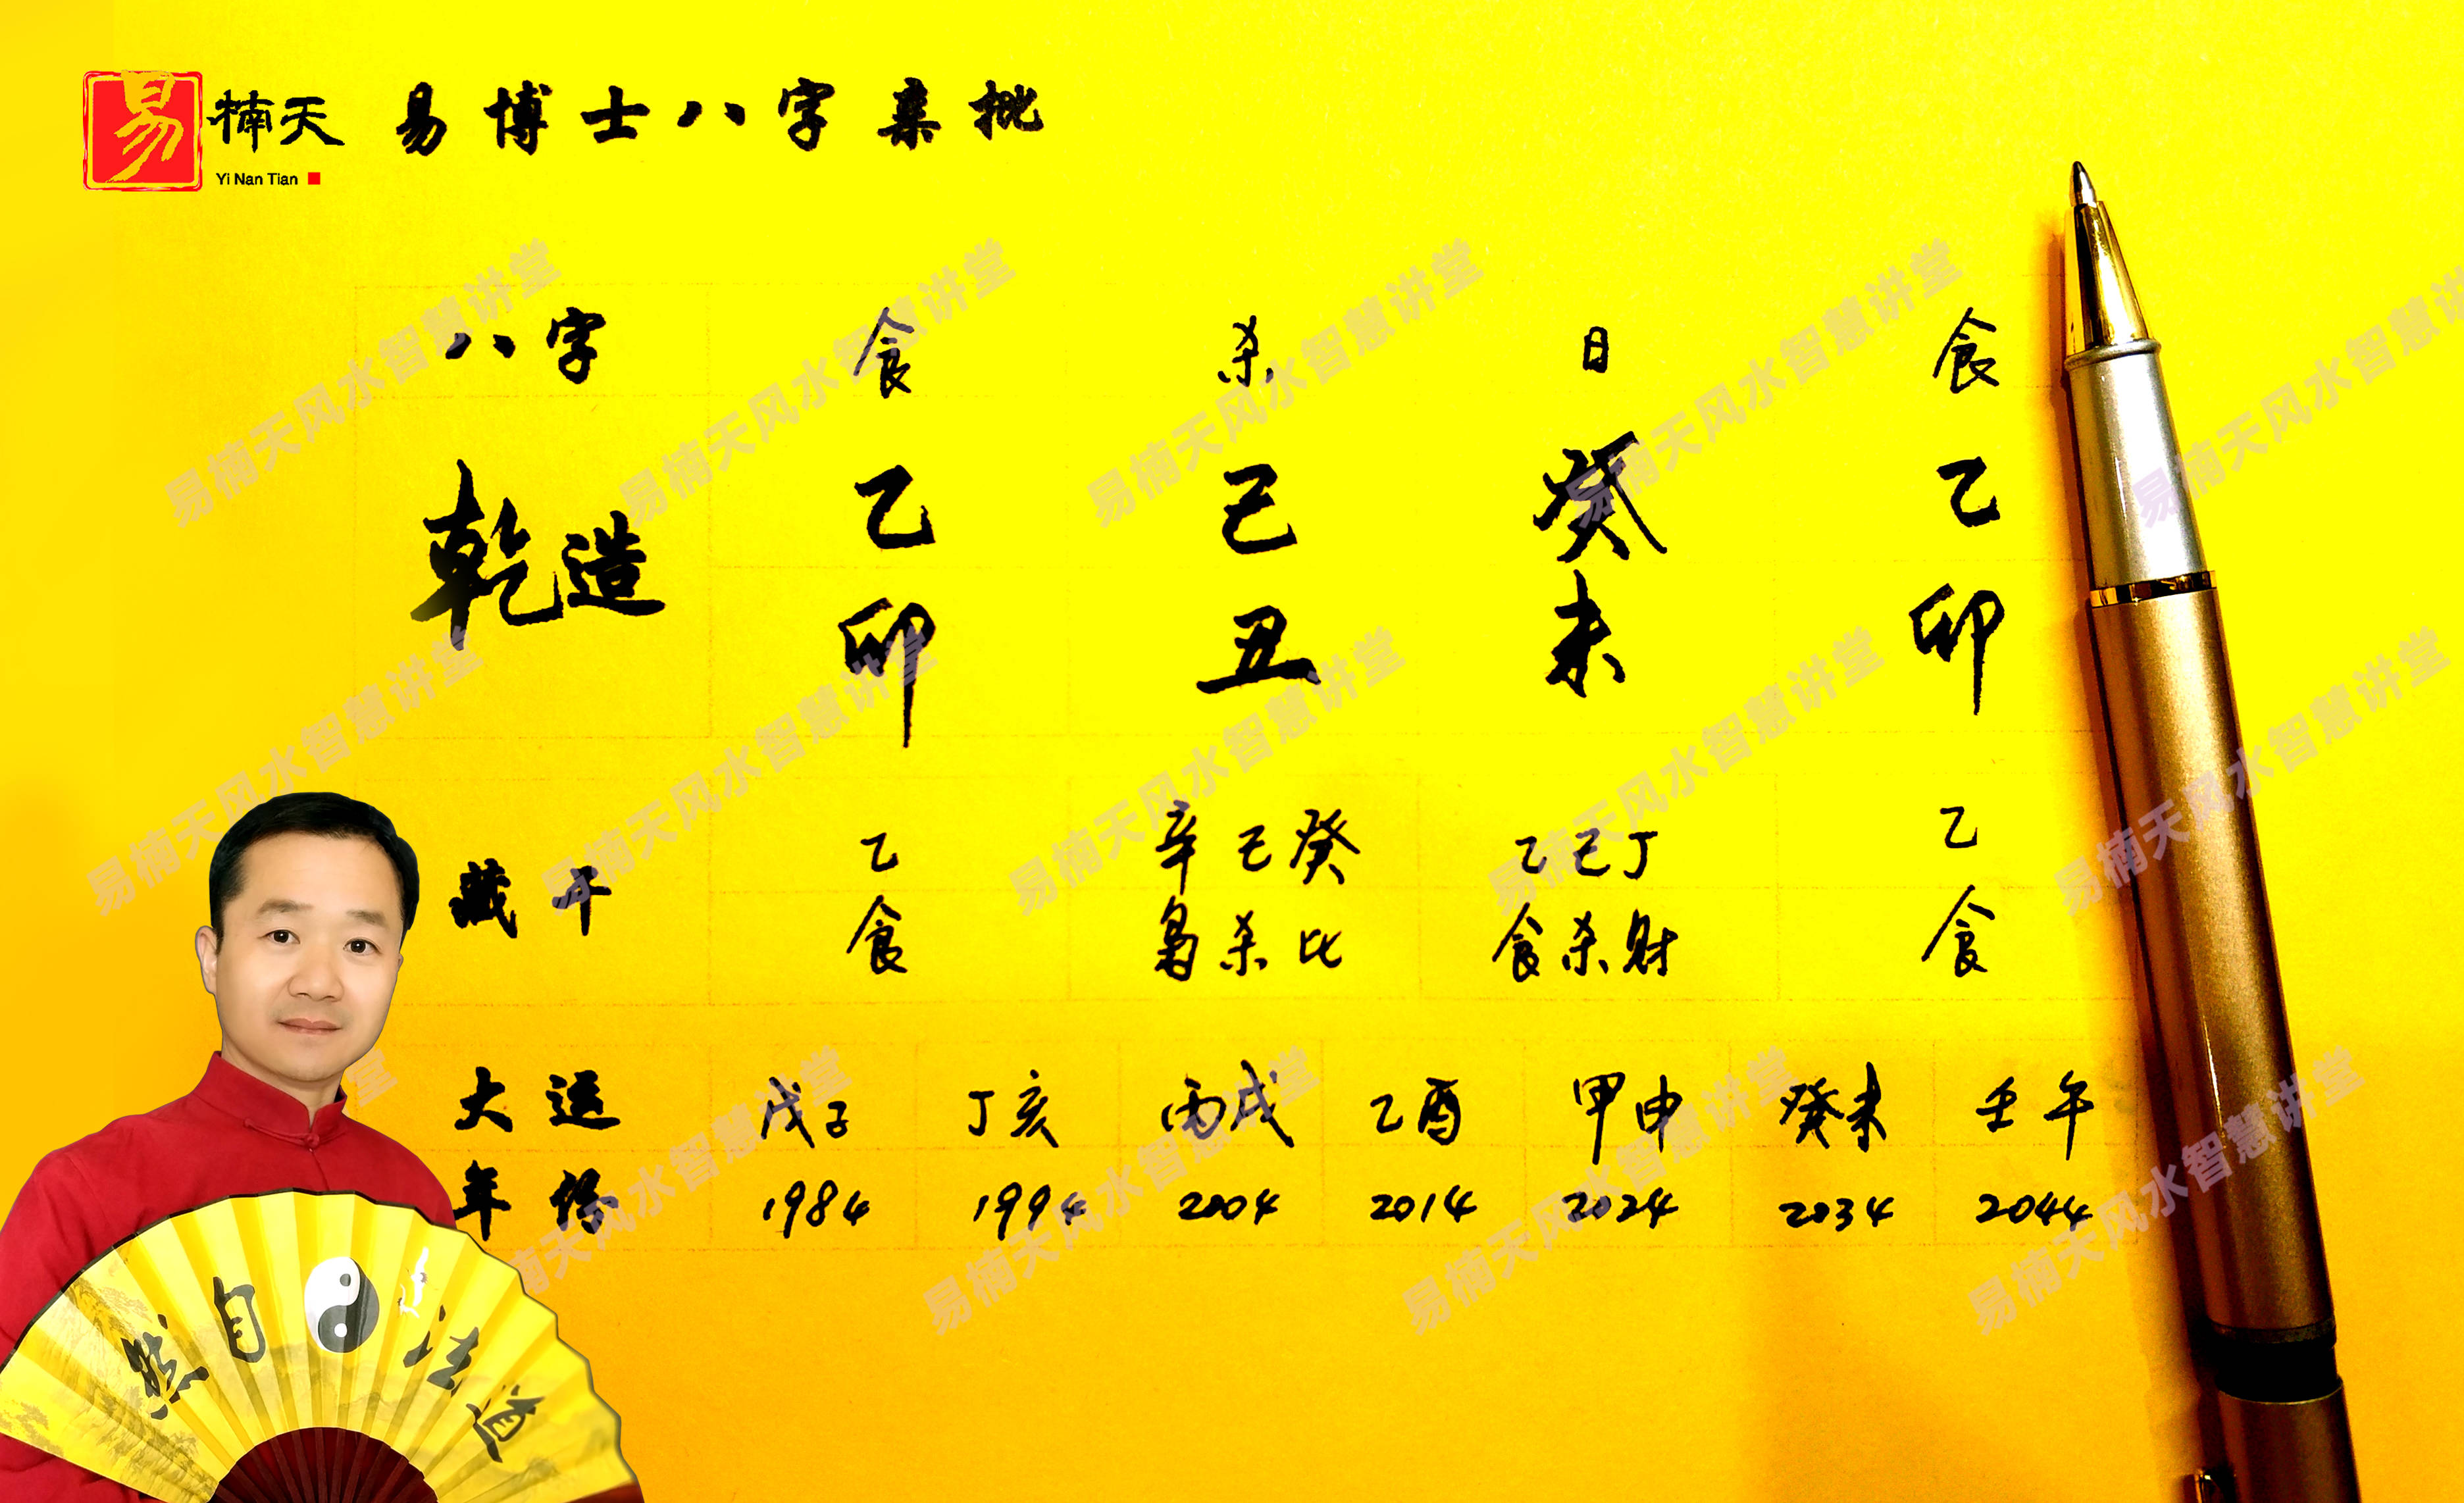 易 楠天 易博士八字亲批
Yi Nan Tian
八字 食 杀 日 食
乾造 乙 己 癸 乙
卯 丑 未 卯
藏干 乙 辛己癸 乙己丁 乙
食 枭杀比 食杀财 食
大运 戊子 丁亥 丙戌 乙酉 甲申 癸未 壬午
年份 1984 1994 2004 2014 2024 2034 2044
然自法道
易楠天风水智慧讲堂